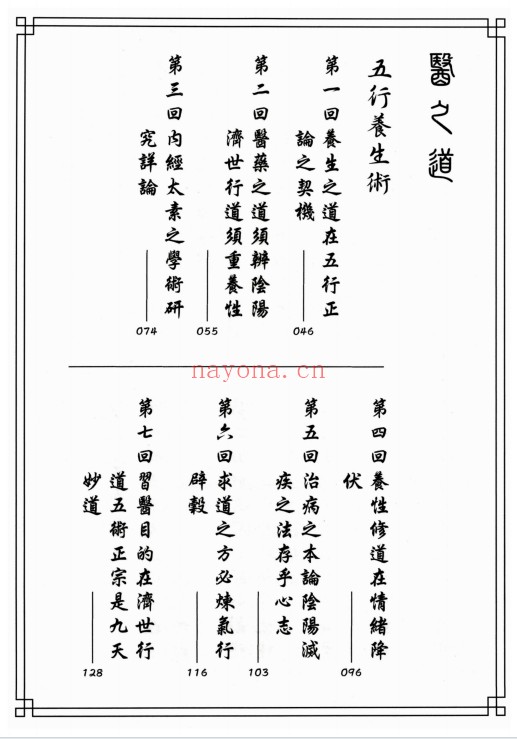 醫之道
五行養生術
第一回養生之道在五行正
論之契機
046
第二回醫藥之道須辨陰陽
濟世行道須重養性
055
第三回內經太素之學術研
究詳論
074
第四回養性修道在情緒降
伏
096
第五回治病之本論陰陽滅
疾之法存乎心志
103
第六回求道之方必煉氣行
辟穀
116
第七回習醫目的在濟世行
道五術正宗是九天
妙道
128
nayona.cn